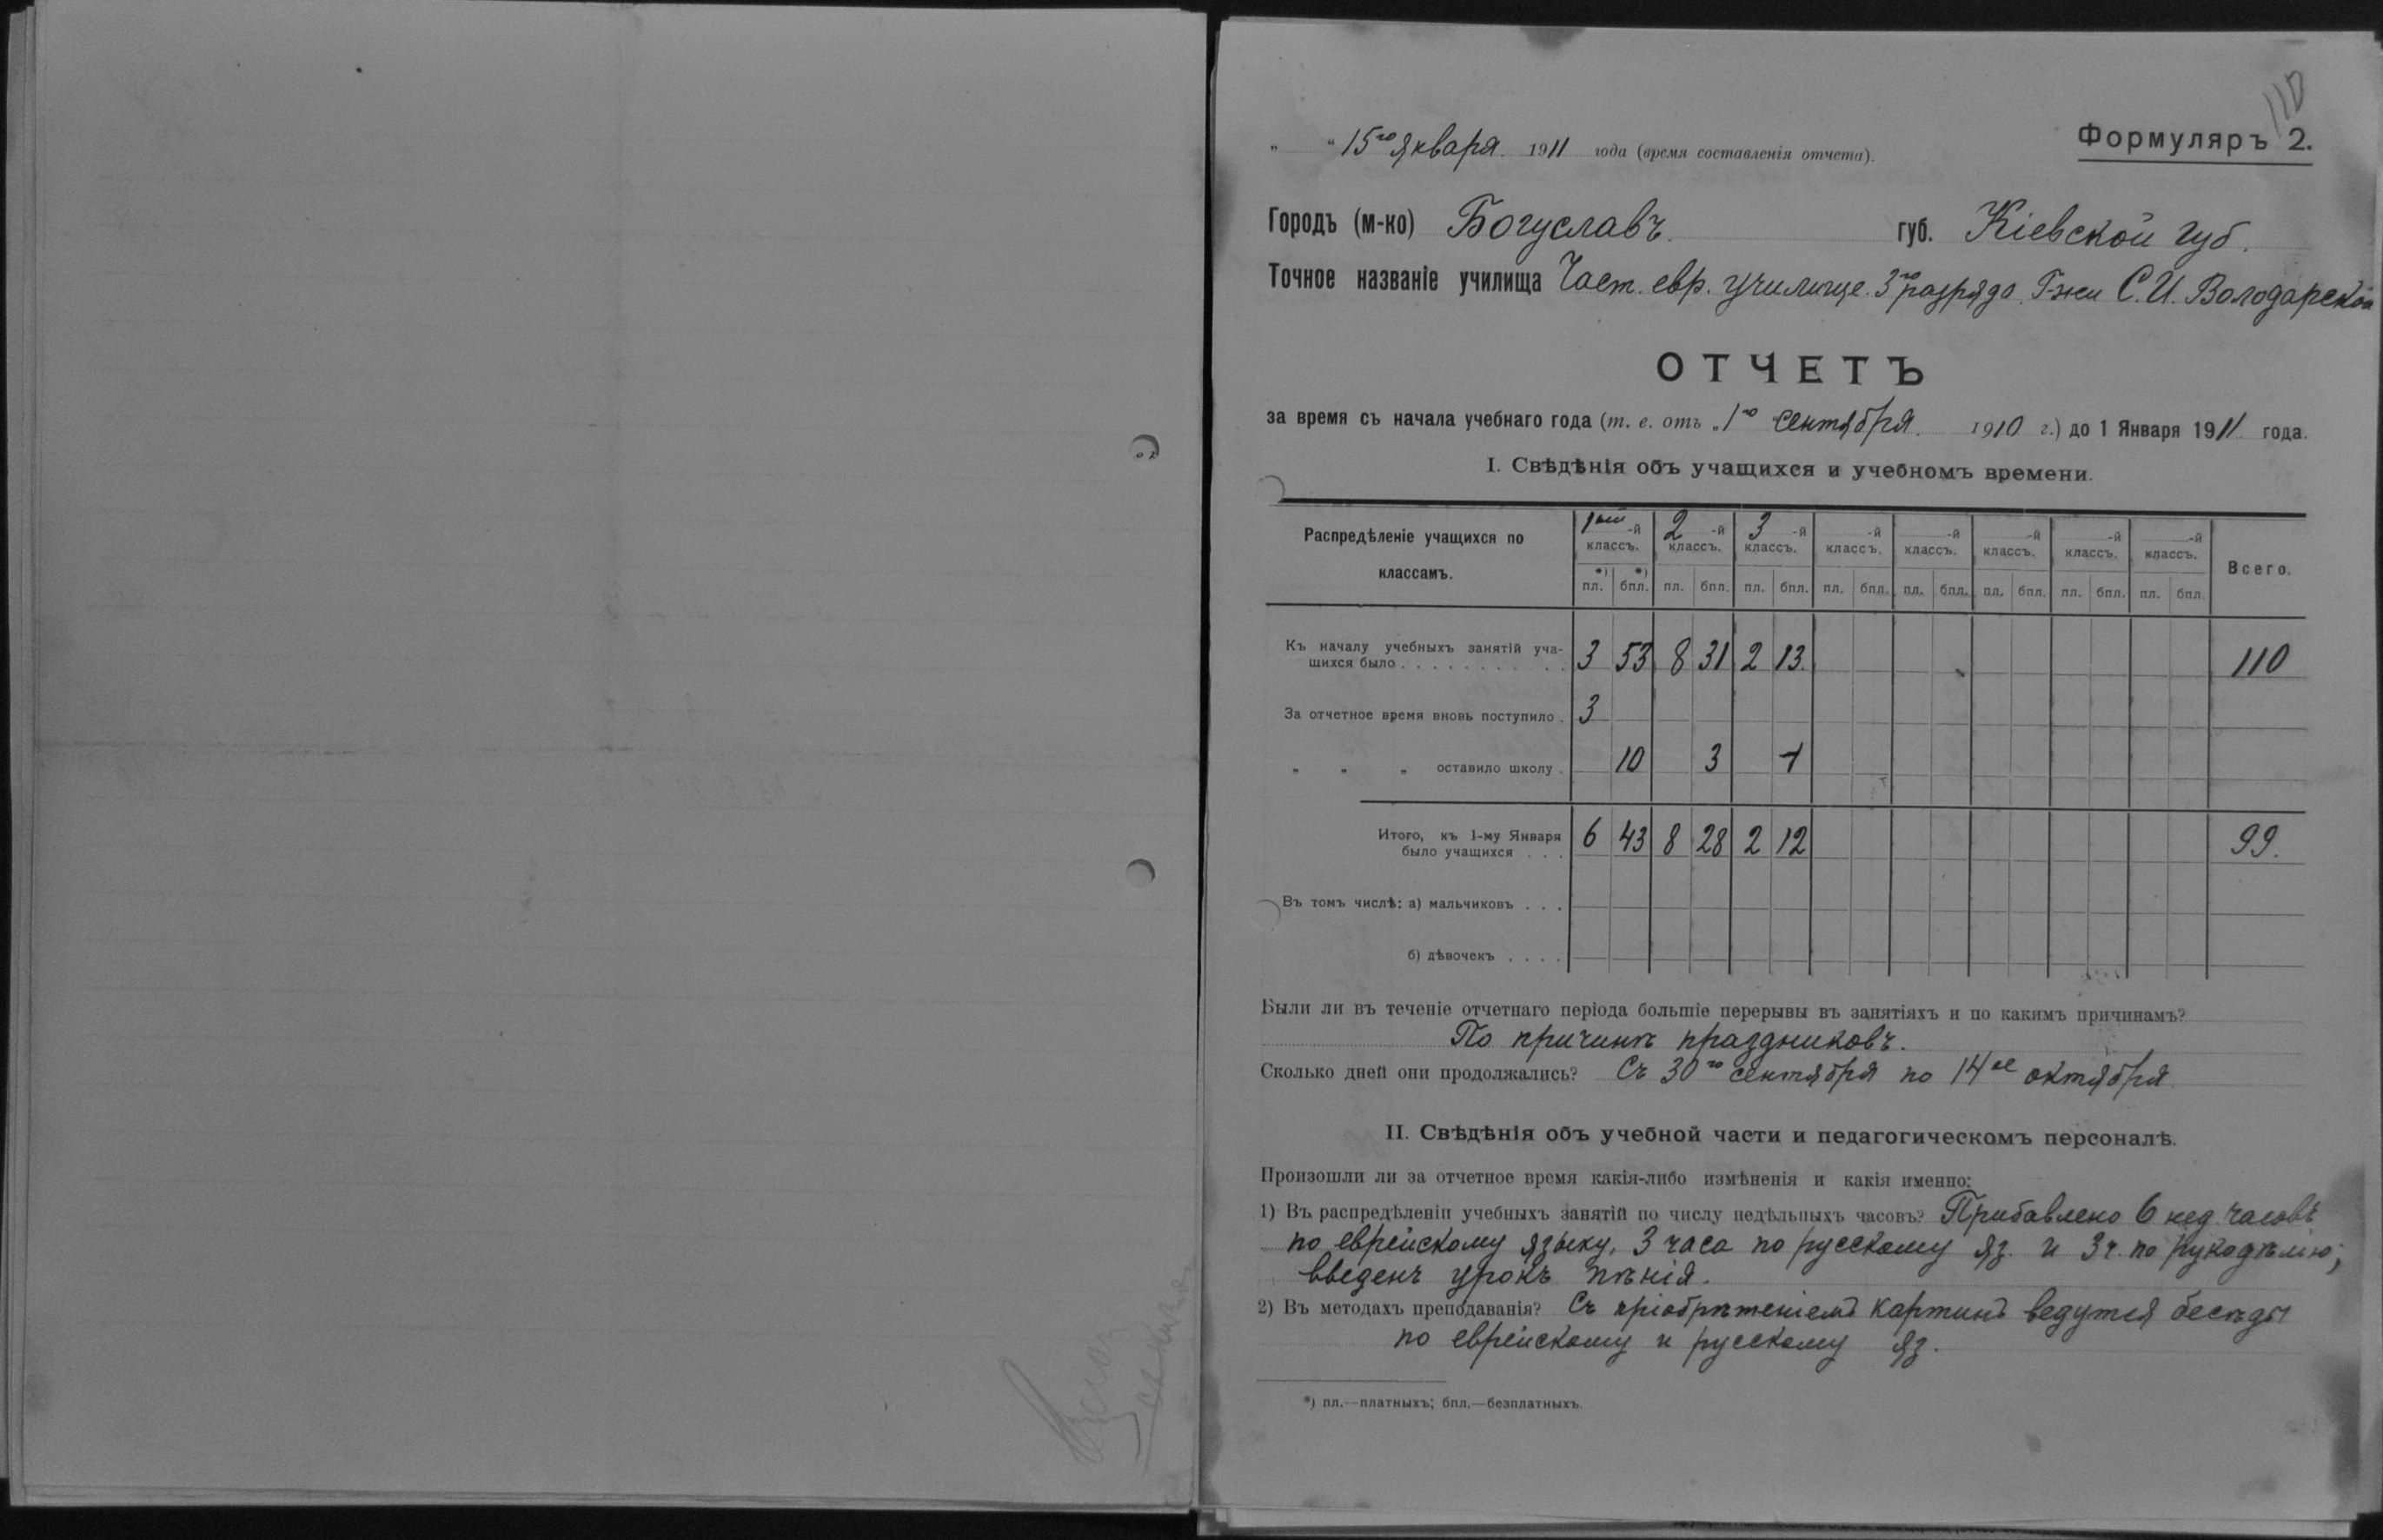 110
Формуляръ 2.
„ “ 15го Января 1911 года (время составленія отчета).
Городъ (м-ко) Богуславъ. губ. Кіевской губ.
Точное названіе училища Част. евр. училище 3го разряда Г-жи С. И. Володарской
ОТЧЕТЪ
за время съ начала учебнаго года (т. е. отъ „1го Сентября 1910 г.) до 1 Января 1911 года.
I. Свѣдѣнія объ учащихся и учебномъ времени.
Распредѣленіе учащихся по классамъ. 1ый -й классъ. 2 -й классъ. 3 -й классъ. -й классъ. -й классъ. -й классъ. -й классъ. -й классъ. Всего.
пл. *) бпл. *) пл. бпл. пл. бпл. пл. бпл. пл. бпл. пл. бпл. пл. бпл. пл. бпл.
Къ началу учебныхъ занятій уча-
щихся было . . . 3 53 8 31 2 13 110
За отчетное время вновь поступило . 3
„ „ „ оставило школу . 10 3 1
Итого, къ 1-му Января
было учащихся . . . 6 43 8 28 2 12 99.
Въ томъ числѣ: а) мальчиковъ . . .
б) дѣвочекъ . . . .
Были ли въ теченіе отчетнаго періода большіе перерывы въ занятіяхъ и по какимъ причинамъ?
По причинѣ праздниковъ.
Сколько дней они продолжались? Съ 30го сентября по 14ое октября
II. Свѣдѣнія объ учебной части и педагогическомъ персоналѣ.
Произошли ли за отчетное время какія-либо измѣненія и какія именно:
1) Въ распредѣленіи учебныхъ занятій по числу недѣльныхъ часовъ? Прибавлено 6 нед. часовъ
по еврейскому языку, 3 часа по русскому яз. и 3 ч. по рукодѣлію;
введенъ урокъ пѣнія.
2) Въ методахъ преподаванія? Съ пріобрѣтеніемъ картинъ ведутся бесѣды
по еврейскому и русскому яз.
*) пл.—платныхъ; бпл.—безплатныхъ.